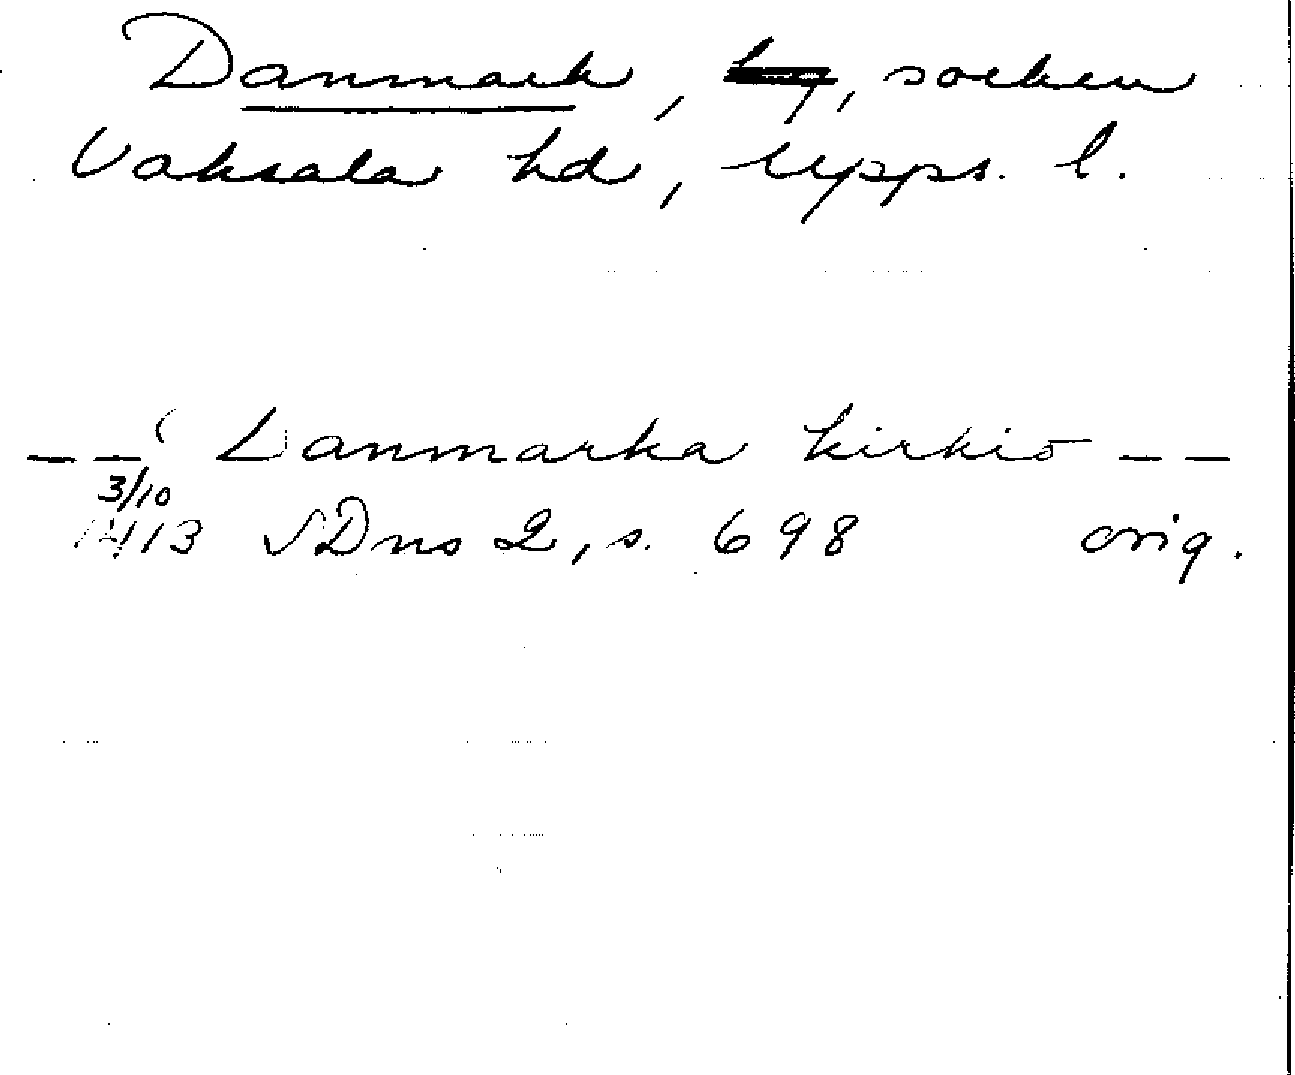 Danmark, by, socken
Vaksala hd, Upps. l.
– – ( Danmarka kirkio – –
3/10
1413 SDns 2, s. 698 orig.